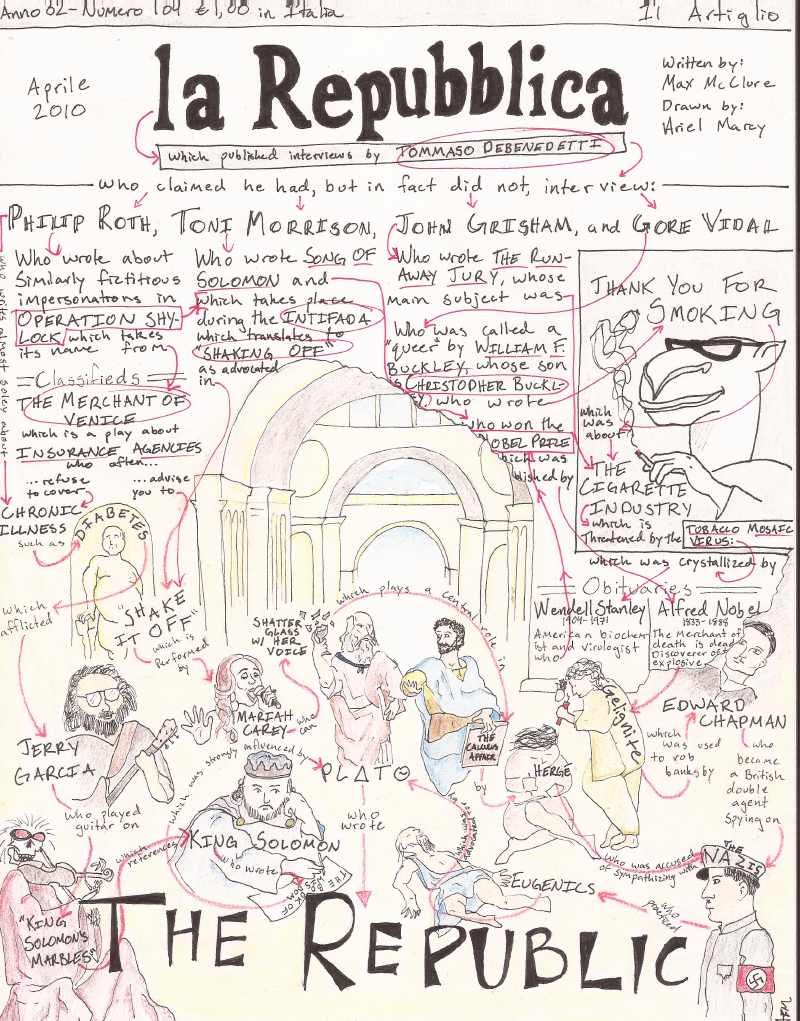 Anno 02-Numero 104 €1,00 in Italia
Il Artiglio
Aprile
2010
la Repubblica
Written by:
Max McClure
Drawn by:
Ariel Marcy
which published interviews by TOMMASO DEBENEDETTI
who claimed he had, but in fact did not, interview:
PHILIP ROTH, TONI MORRISON, JOHN GRISHAM, and GORE VIDAL
who writes almost soley about
Who wrote about
Similarly fictitious
impersonations in
OPERATION SHY-
LOCK, which takes
its name from
Classifieds
THE MERCHANT OF
VENICE
which is a play about
INSURANCE AGENCIES
who often...
...refuse
to cover
...advise
you to
CHRONIC
ILLNESS
such as
DIABETES
which
afflicted
Who wrote SONG OF
SOLOMON and
which takes place
during the INTIFADA
which translates to
"SHAKING OFF"
as advocated
in
Who wrote THE RUN-
AWAY JURY, whose
main subject was
Who was called a
"queer" by WILLIAM F.
BUCKLEY, whose son
is CHRISTOPHER BUCKL-
EY, who wrote
who won the
NOBEL PRIZE
which was
blished by
THANK YOU FOR
SMOKING
which
was
about
THE
CIGARETTE
INDUSTRY
which is
threatened by the
TOBACCO MOSAIC
VIRUS:
which was crystallized by
Obituaries
Wendell Stanley
1904-1971
American biochem-
ist and virologist
who
Alfred Nobel
1833-1888
The Merchant of
death is dead
Discoverer of
explosive
"SHAKE
IT OFF"
which is
performed
by
SHATTER
GLASS
W/ HER
VOICE
which plays a central role in
MARIAH
CAREY
who
can
JERRY
GARCIA
who played
guitar on
which was strongly influenced by
PLATO
who
wrote
THE
CALCULUS
AFFAIR
by
HERGÉ
Gelignite
which
was used
to rob
banks by
EDWARD
CHAPMAN
who
became
a British
double
agent
spying on
which
references
KING SOLOMON
who wrote
THE
BOOK OF
"KING
SOLOMON'S
MARBLES"
EUGENICS
who was accused
of sympathizing with
THE
NAZIS
who
practiced
THE REPUBLIC